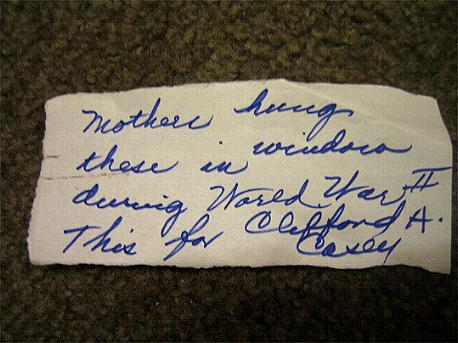 Mothers hung
these in window
during World War II
This for Clifford A.
Casey